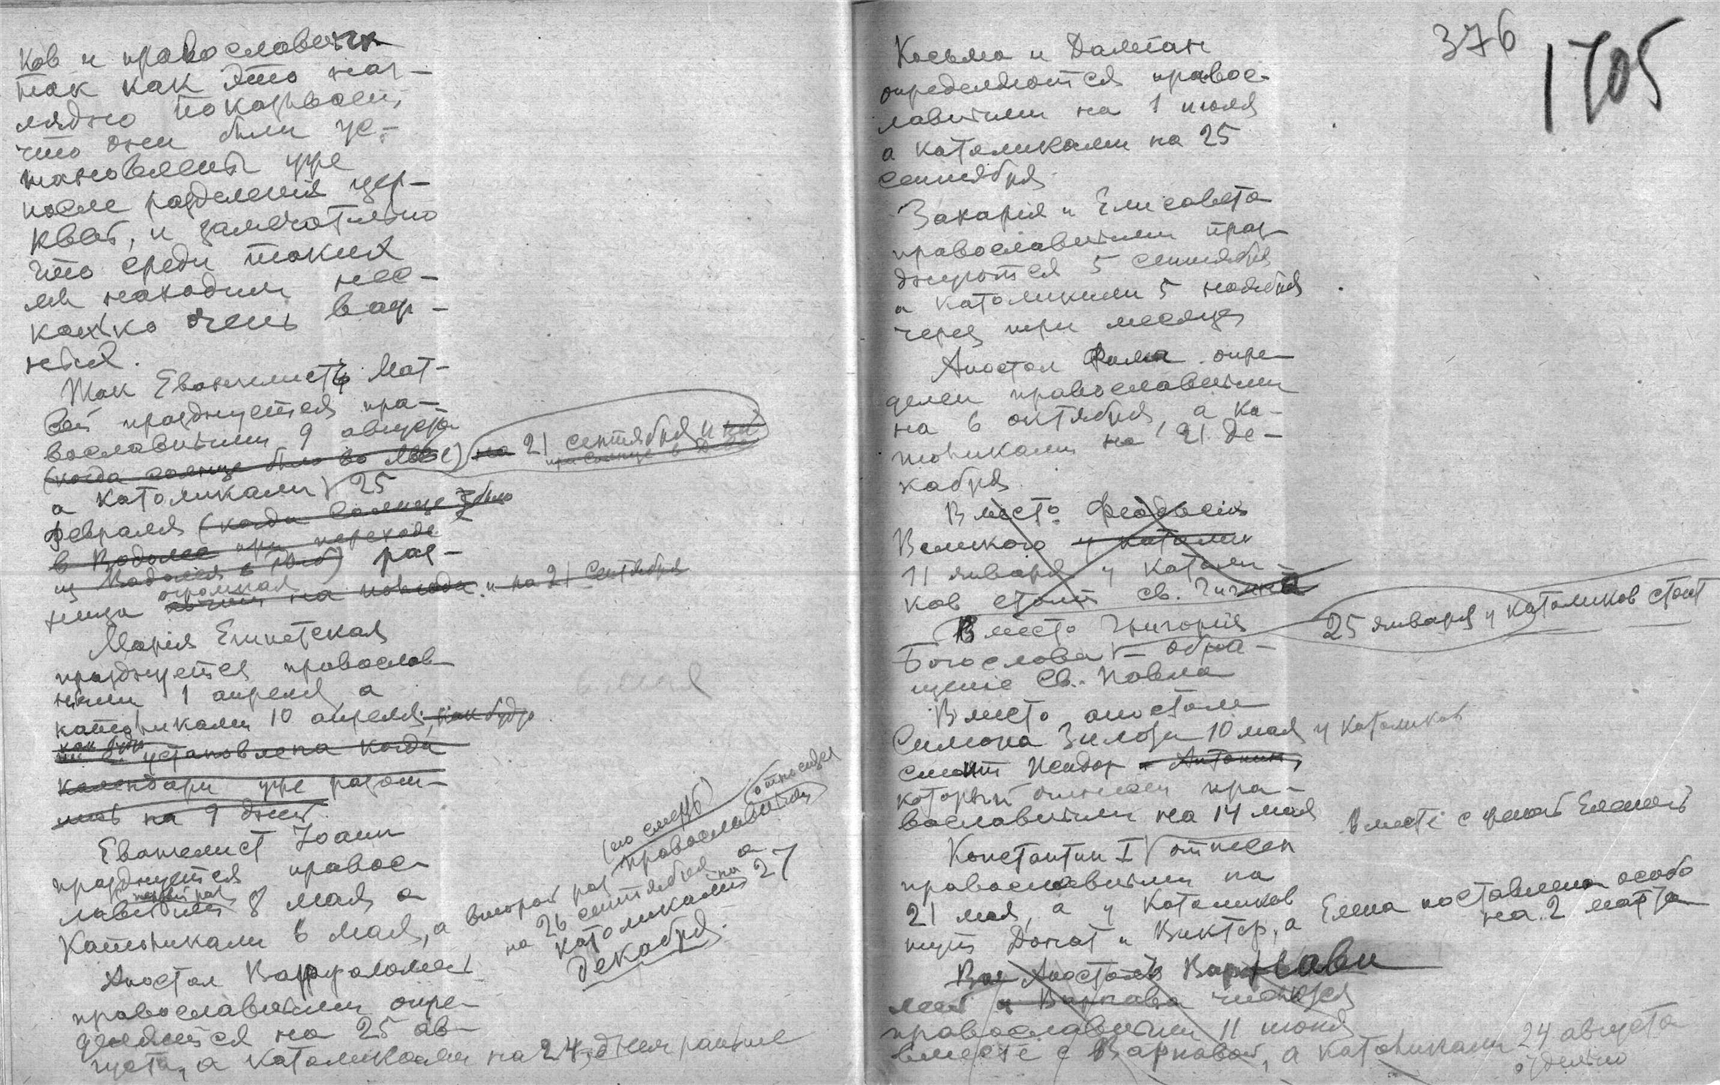 ков и православных
так как это наг-
лядно показывает,
что дни были ус-
тановлены уже
после разделения цер-
квей, и замечательно
что среди таких
мы находим нес-
колько очень важ-
ных.
Так Евангелистъ Мат-
вей празднуется пра-
вославными 9 августа
(когда солнце было во Льве) на 21 сентября и
при солнце в
а католиками 25
февраля (когда солнце было
в Водолее при переходе
из Водолея в) раз-
огромная
ница и на 21 Сентября
Марія Египетская
празднуется православ-
ными 1 апреля а
6 мая
католиками 10 апреля, как будто
как будто
установлена когда
календари уже разош-
лись на 9 дней.
Евангелист Іоанн
празднуется правос-
первый раз
лавными 8 мая а
Католиками 6 мая, а второй раз
(по смерть) относится
православными
на 26 сентября а
католиками на 27
декабря.
Апостол Варфоломей
православными опре-
деляется на 25 ав-
густа, а католиками на 24, днем раньше
376
1705
Косьма и Дамиан
определяются правос-
лавными на 1 июля
а католиками на 25
сентября.
Захарія и Елисавета
православными праз-
днуются 5 сентября
а католиками 5 ноября
через три месяца
Апостол Фома опре-
делен православными
на 6 октября, а ка-
толиками на 21 де-
кабря
Вместо Феодосія
Великого у католик
11 января у католи-
ков стоит св. Гигина
Вместо Григорія
25 января у католиков стоит
Богослова — обра-
щеніе Св. Павла
Вместо апостола
Симона Зилота 10 мая у католиков
стоит Исидор Антонин,
который отнесен пра-
вославными на 14 мая
Вместе с Еленой
Константин I отнесен
православными на
21 мая, а у католиков
тут Донат и Виктор, а Елена поставлена особо
на 2 марта
Апостолъ Вар
и Варнава числится
православными 11 июня
вместе с Варнавой, а католиками 24 августа
отдельно